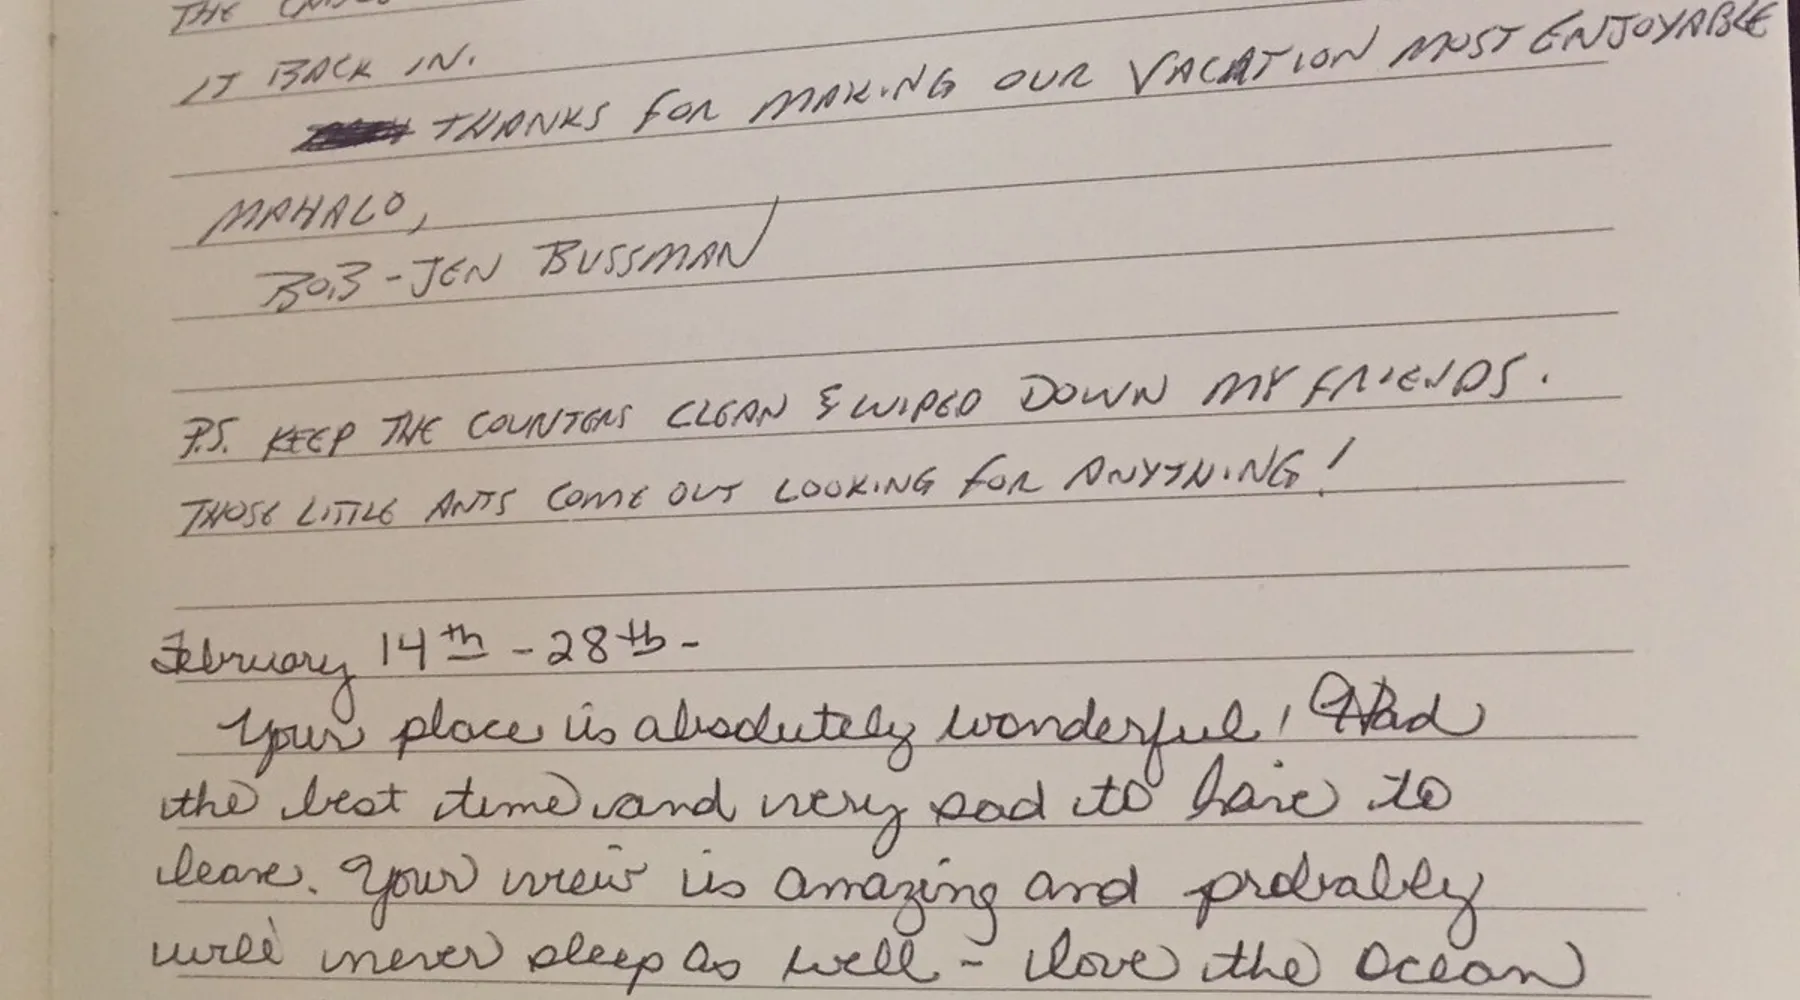 THE
IT BACK IN.
THANKS FOR MAKING OUR VACATION MOST ENJOYABLE
MAHALO,
BOB-JEN BUSSMAN
P.S. KEEP THE COUNTERS CLEAN & WIPED DOWN MY FRIENDS.
THOSE LITTLE ANTS COME OUT LOOKING FOR ANYTHING!
February 14th - 28th -
Your place is absolutely wonderful! Had
the best time and very sad to have to
leave. Your view is amazing and probably
will never sleep as well - love the ocean